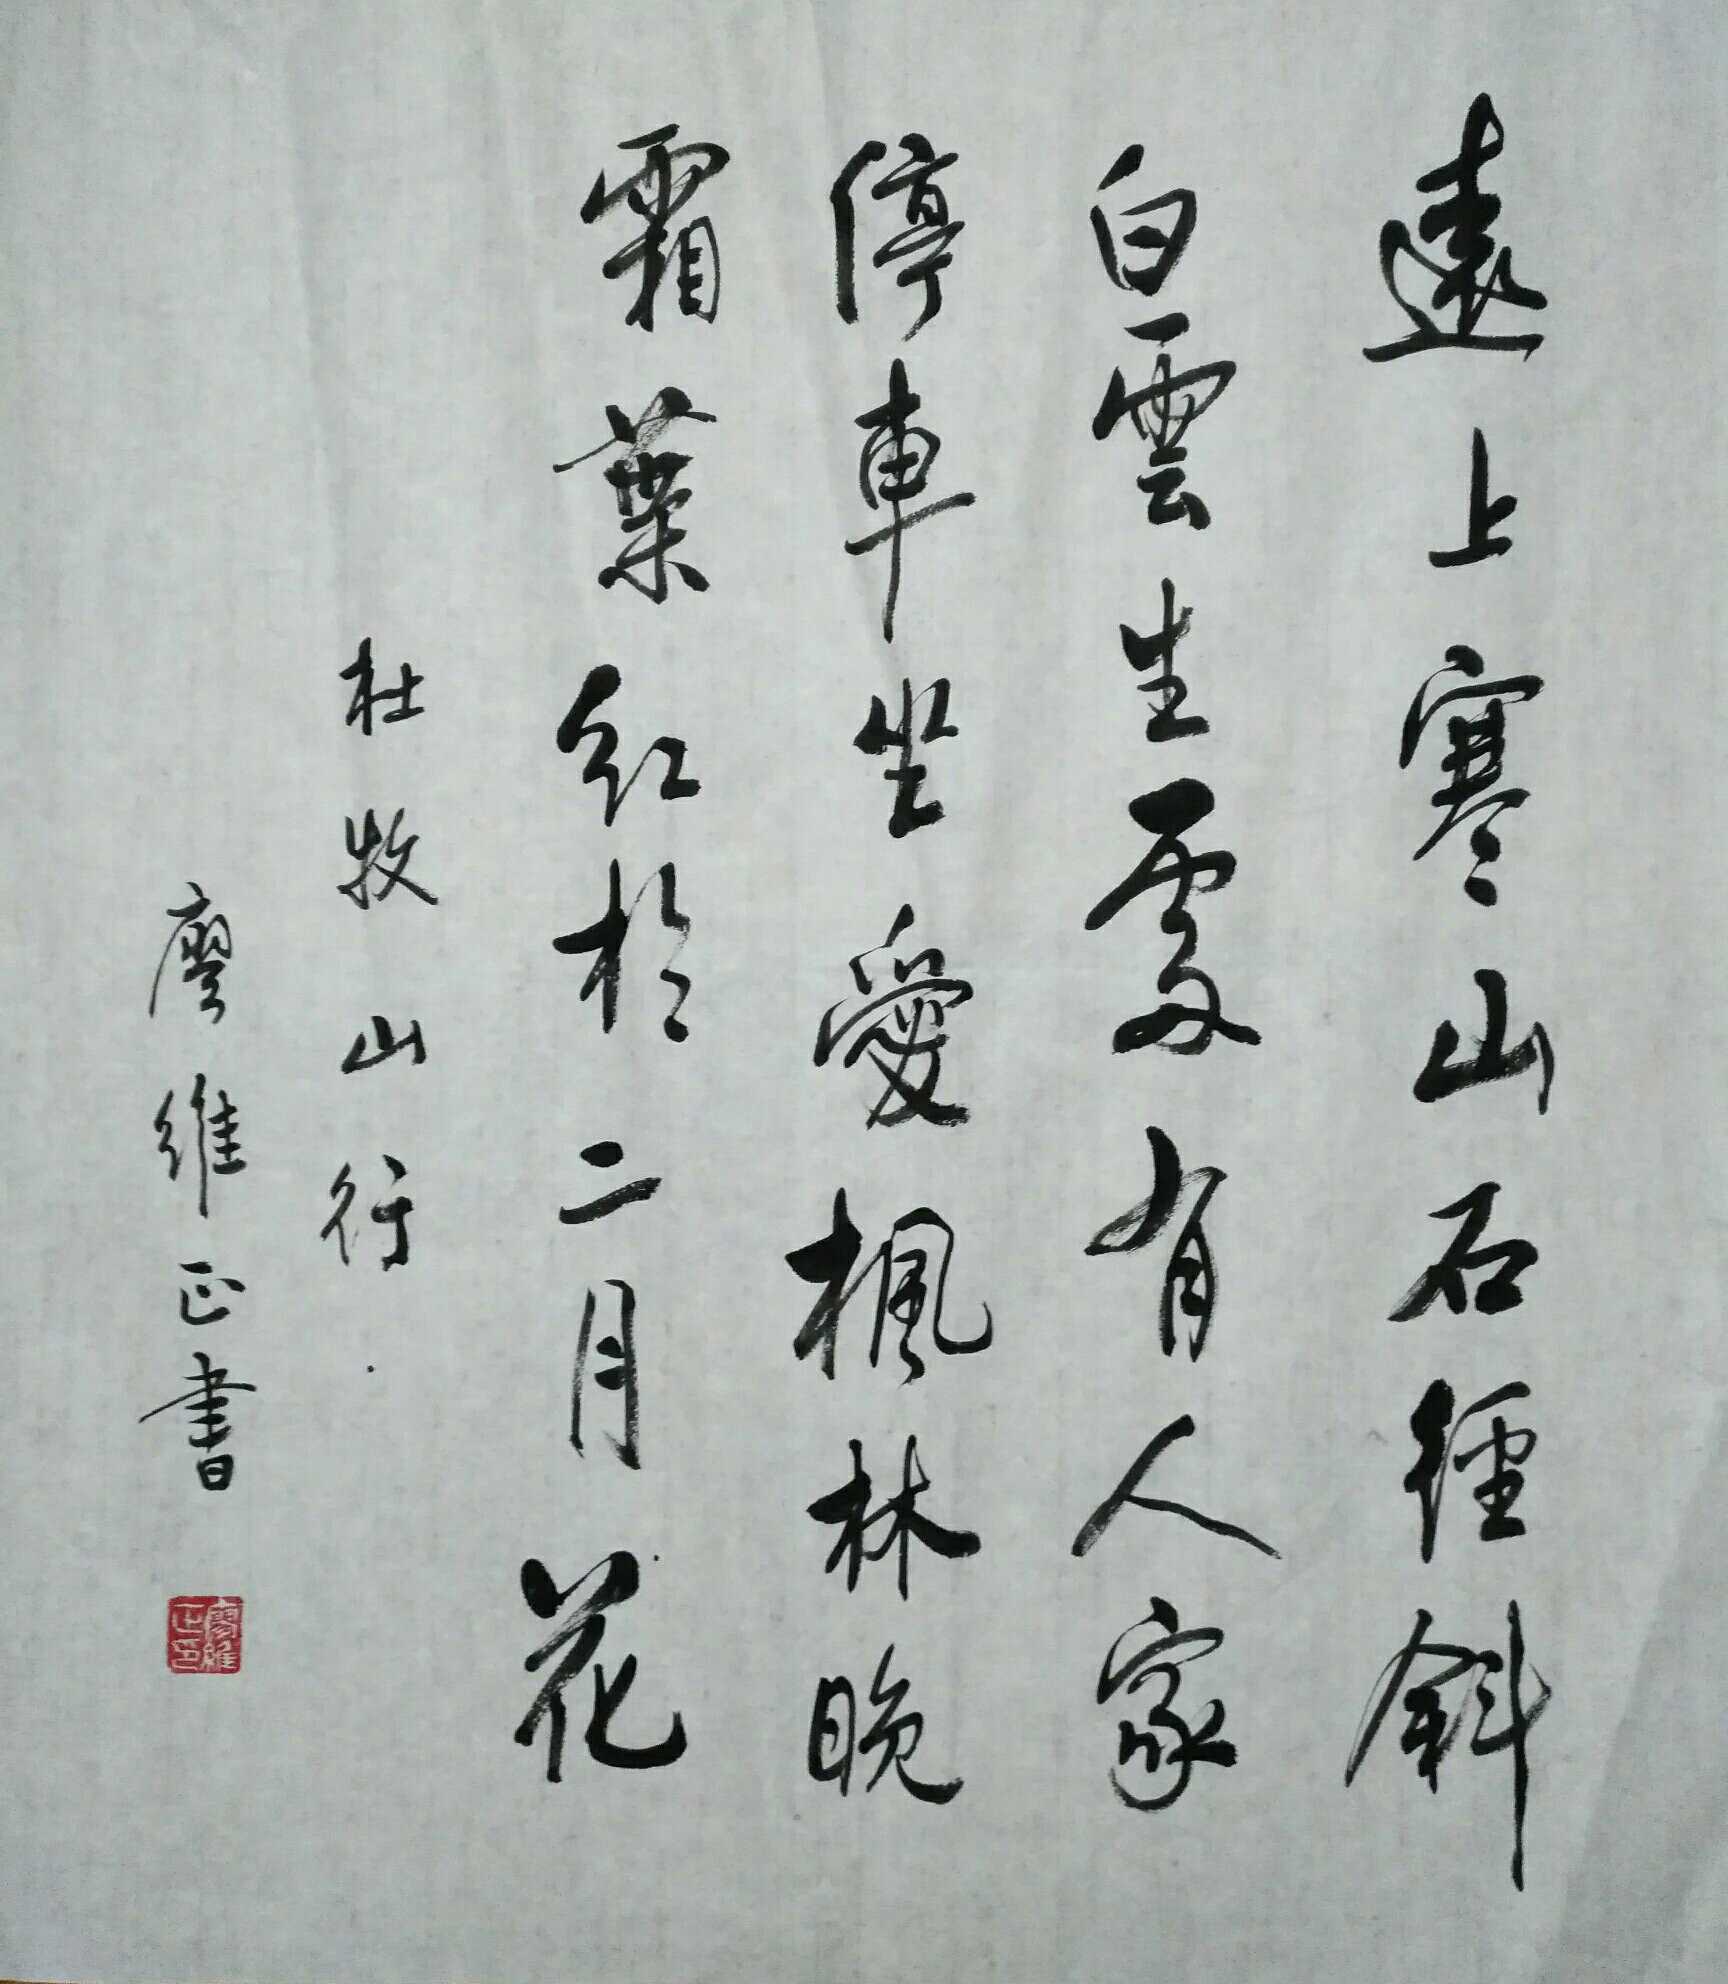 遠上寒山石徑斜
白雲生處有人家
停車坐愛楓林晚
霜葉紅於二月花
杜牧山行
廖維正書
廖維正印